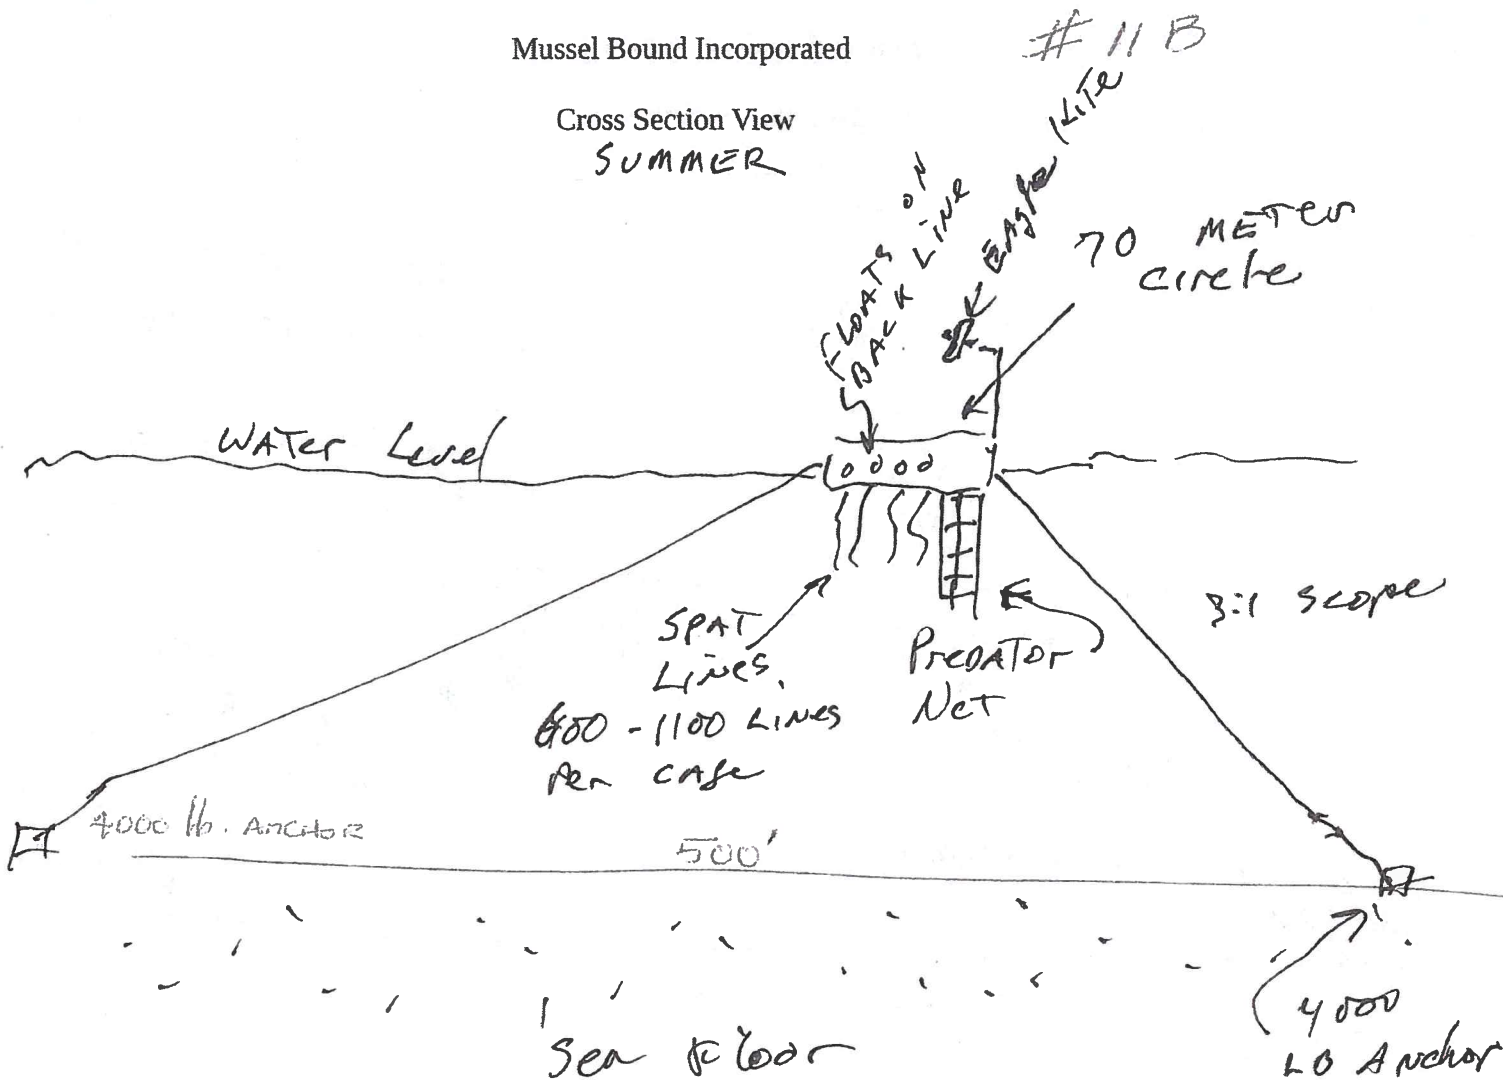 Mussel Bound Incorporated
# 11 B
Cross Section View
SUMMER
FLOATS ON
BACK LINE
EAgle KiTe
70 METer
circle
WATer Level
SPAT
Lines
400 - 1100 Lines
Per cage
PreDATor
NeT
3:1 scope
4000 lb. ANCHOR
500'
4000
LB Anchor
Sea Floor